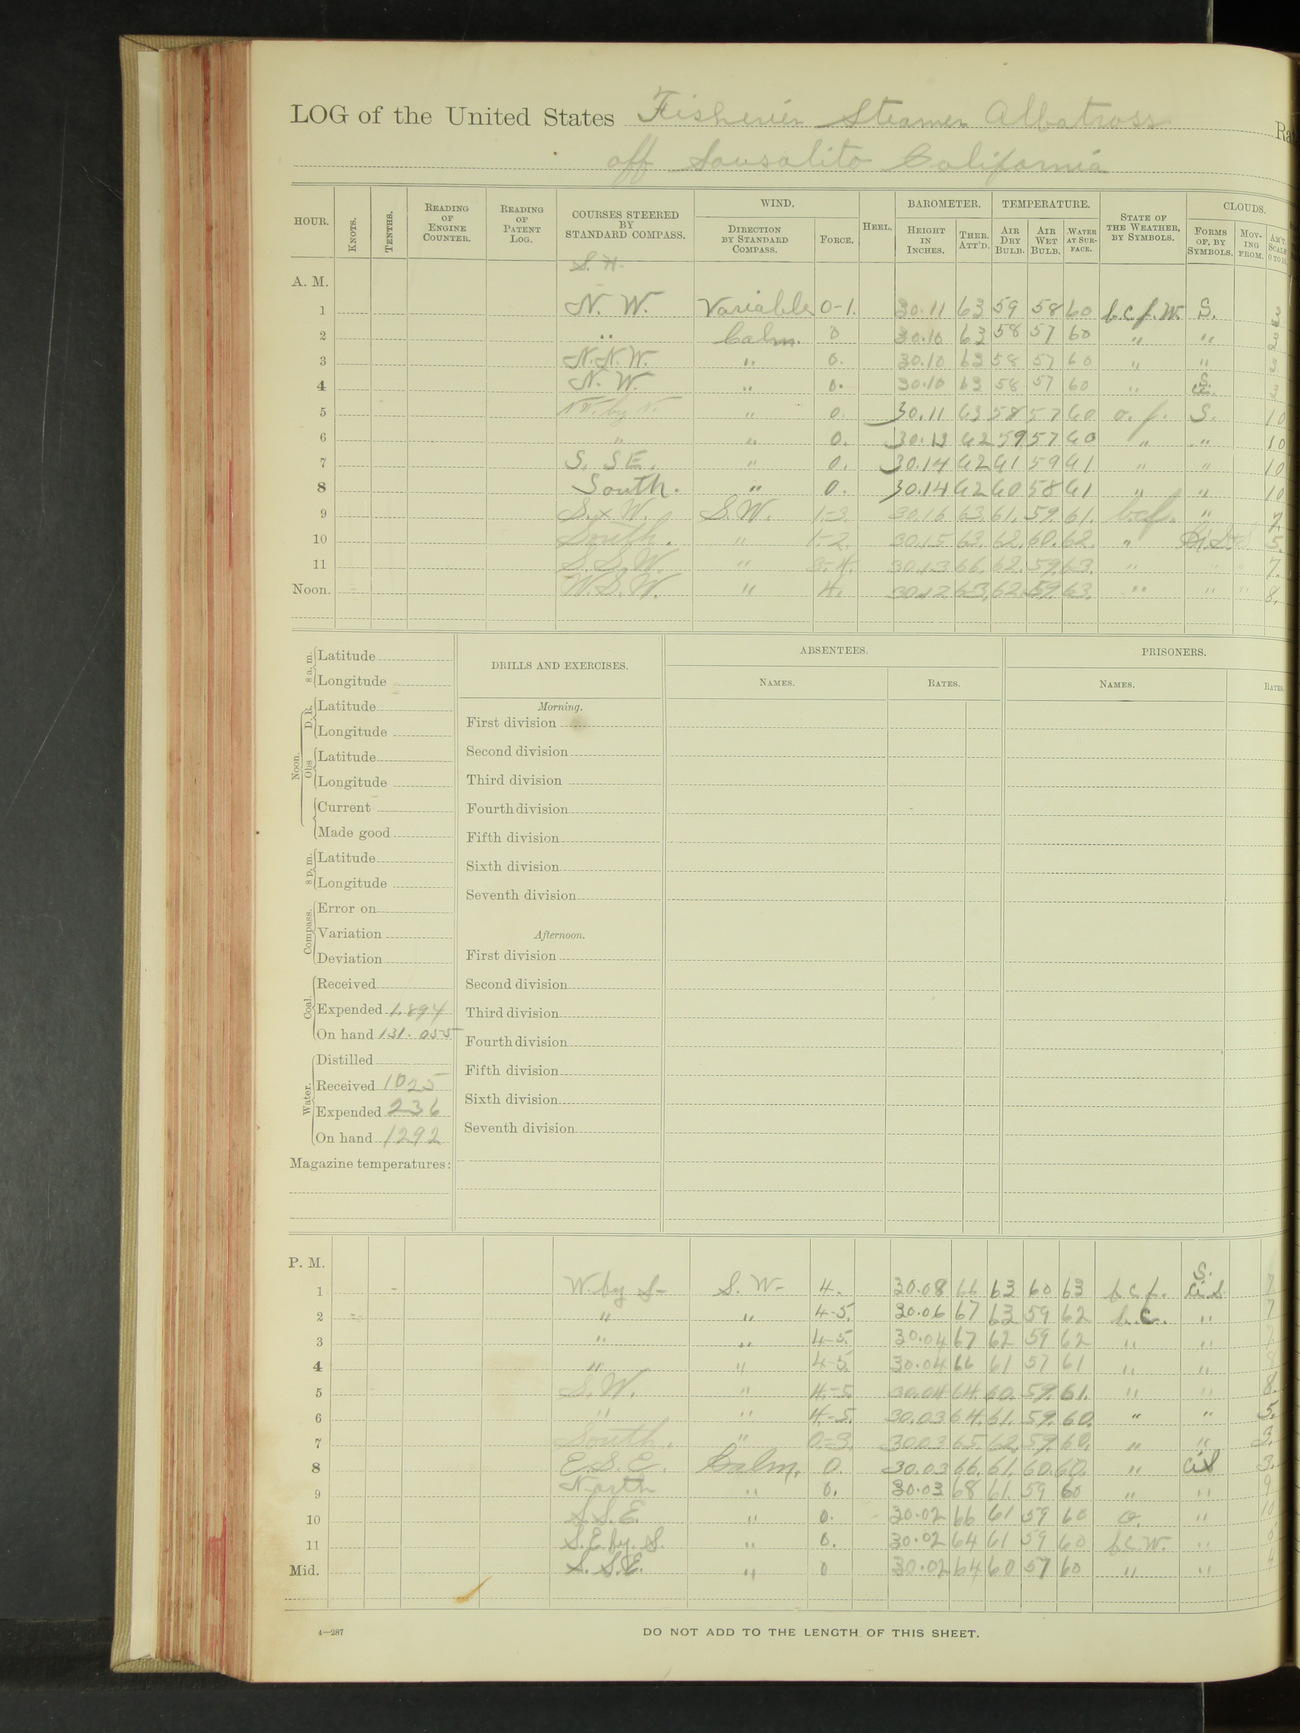 LOG of the United States Fisheries Steamer Albatross Ra
off Sausalito California
HOUR. KNOTS. TENTHS. READING OF ENGINE COUNTER. READING OF PATENT LOG. COURSES STEERED BY STANDARD COMPASS. WIND. DIRECTION BY STANDARD COMPASS. FORCE. HEEL. BAROMETER. HEIGHT IN INCHES. THER. ATT'D. TEMPERATURE. AIR DRY BULB. AIR WET BULB. WATER AT SURFACE. STATE OF THE WEATHER, BY SYMBOLS. CLOUDS. FORMS OF, BY SYMBOLS. MOVING FROM. AM'T. SCALE 0 TO 10
S. H.
A. M.
1 N. W. Variable 0-1. 30.11 63 59 58 60 b.c.f.w. S. 3
2 " Calm. 0 30.10 63 58 57 60 " " 3
3 N.N.W. " 0. 30.10 63 58 57 60 " " 3
4 N. W. " 0. 30.10 63 58 57 60 " S. 3
5 N.W. by N. " 0. 30.11 63 58 57 60 o. f. S. 10
6 " " 0. 30.13 62 59 57 60 " " 10
7 S. SE. " 0. 30.14 62 61 59 61 " " 10
8 South. " 0. 30.14 62 60 58 61 " " 10
9 S. x W. S.W. 1-3 30.16 63 61. 59 61. b.c.f. " 7.
10 South. " 1-2. 30.15 63. 62. 60. 62. " 5.
11 S.S.W. " 3-4. 30.13 66. 62. 59. 63. " " " 7.
Noon. W.S.W. " 4. 30.12 63. 62. 59. 63. " " " 8.
8 a. m. Latitude
Longitude
Noon. D. R. Latitude
Longitude
Obs Latitude
Longitude
Current
Made good
8 p. m. Latitude
Longitude
Compass. Error on
Variation
Deviation
Coal. Received
Expended 1.894
On hand 131.055
Water. Distilled
Received 1025
Expended 236
On hand 1292
Magazine temperatures:
DRILLS AND EXERCISES.
Morning.
First division
Second division
Third division
Fourth division
Fifth division
Sixth division
Seventh division
Afternoon.
First division
Second division
Third division
Fourth division
Fifth division
Sixth division
Seventh division
ABSENTEES.
NAMES. RATES.
PRISONERS.
NAMES. RATES.
P. M.
S.
1 W. by S- S. W- 4. 30.08 66 63 60 63 b.c.f. Ci.S. 7
2 " " 4-5. 30.06 67 63 59 62 b.c. " 7
3 " " 4-5. 30.04 67 62 59 62 " "
4 " " 4-5. 30.04 66 61 57 61 " " 8
5 S.W. " 4.-5. 30.04 64. 60. 59. 61. " " 8.
6 " " 4.-5. 30.03 64. 61. 59. 60. " " 5.
7 South. " 0-3. 30.03 65. 62. 59. 60. " " 3.
8 E.S.E. Calm. 0. 30.03 66. 61. 60. 60. " CiS 3.
9 North " 0. 30.03 68 61. 59 60 " " 9
10 S.S.E. " 0. 30.02 66 61 59 60 o. " 10
11 S.E. by. S. " 0. 30.02 64 61 59 60 b.c.w. "
Mid. S. S.E. " 0 30.02 64 60 57 60 " " 4
4—287 DO NOT ADD TO THE LENGTH OF THIS SHEET.